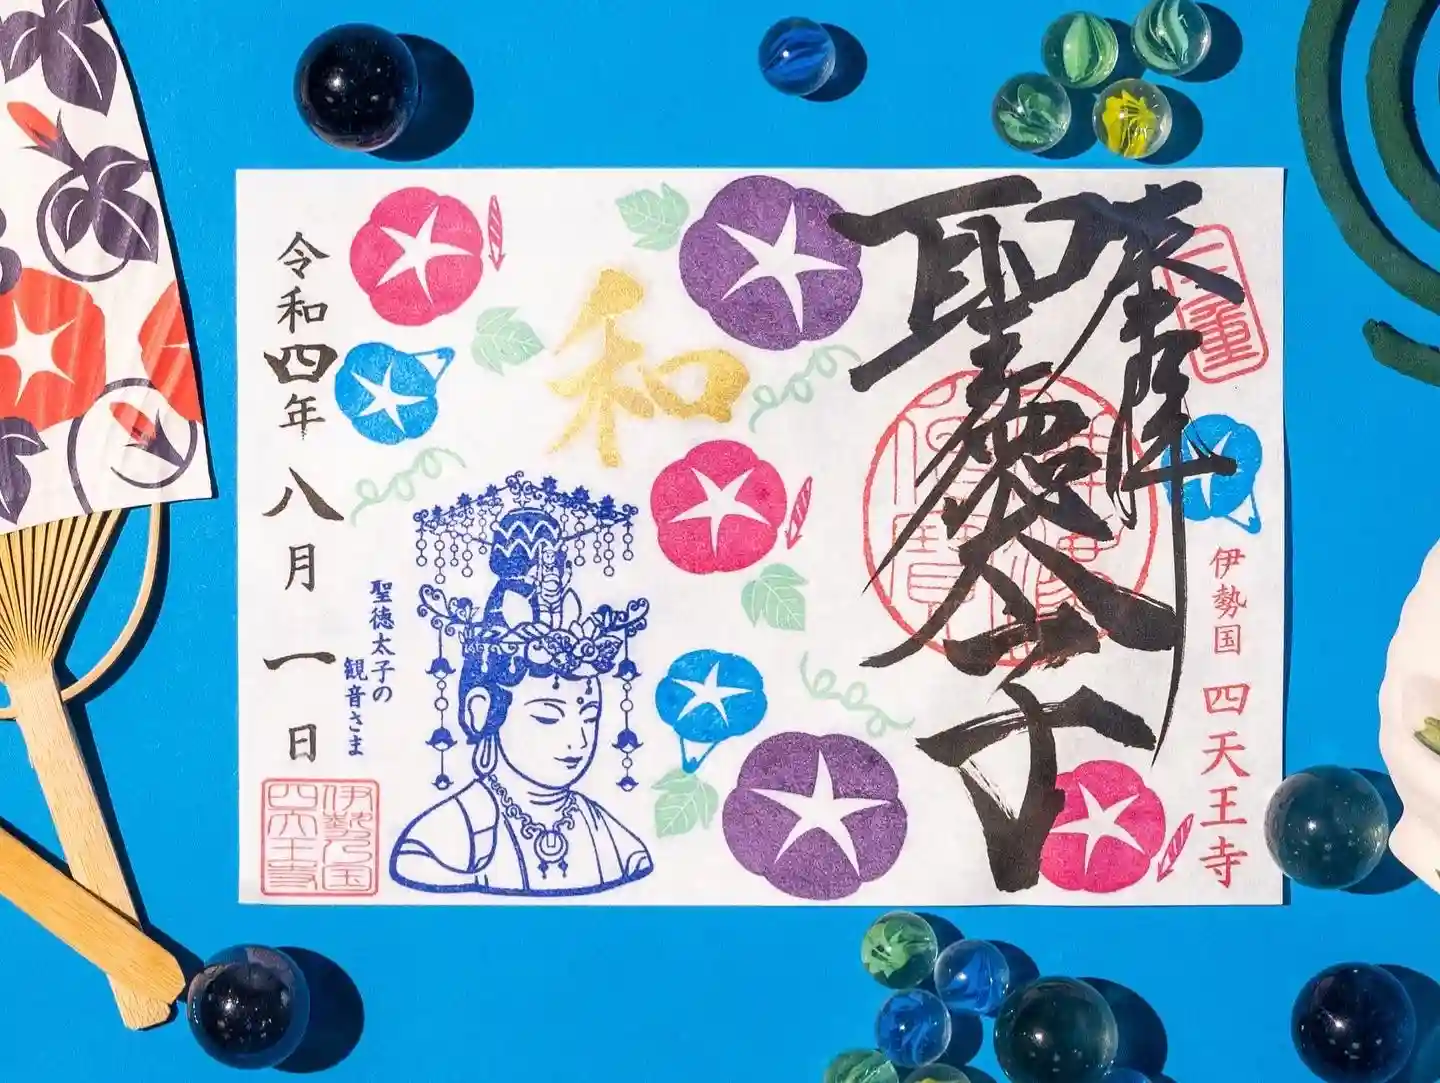 奉拝
聖徳太子
三重
伊勢国 四天王寺
和
聖徳太子の
観音さま
令和四年八月一日
伊勢乃国
四天王寺